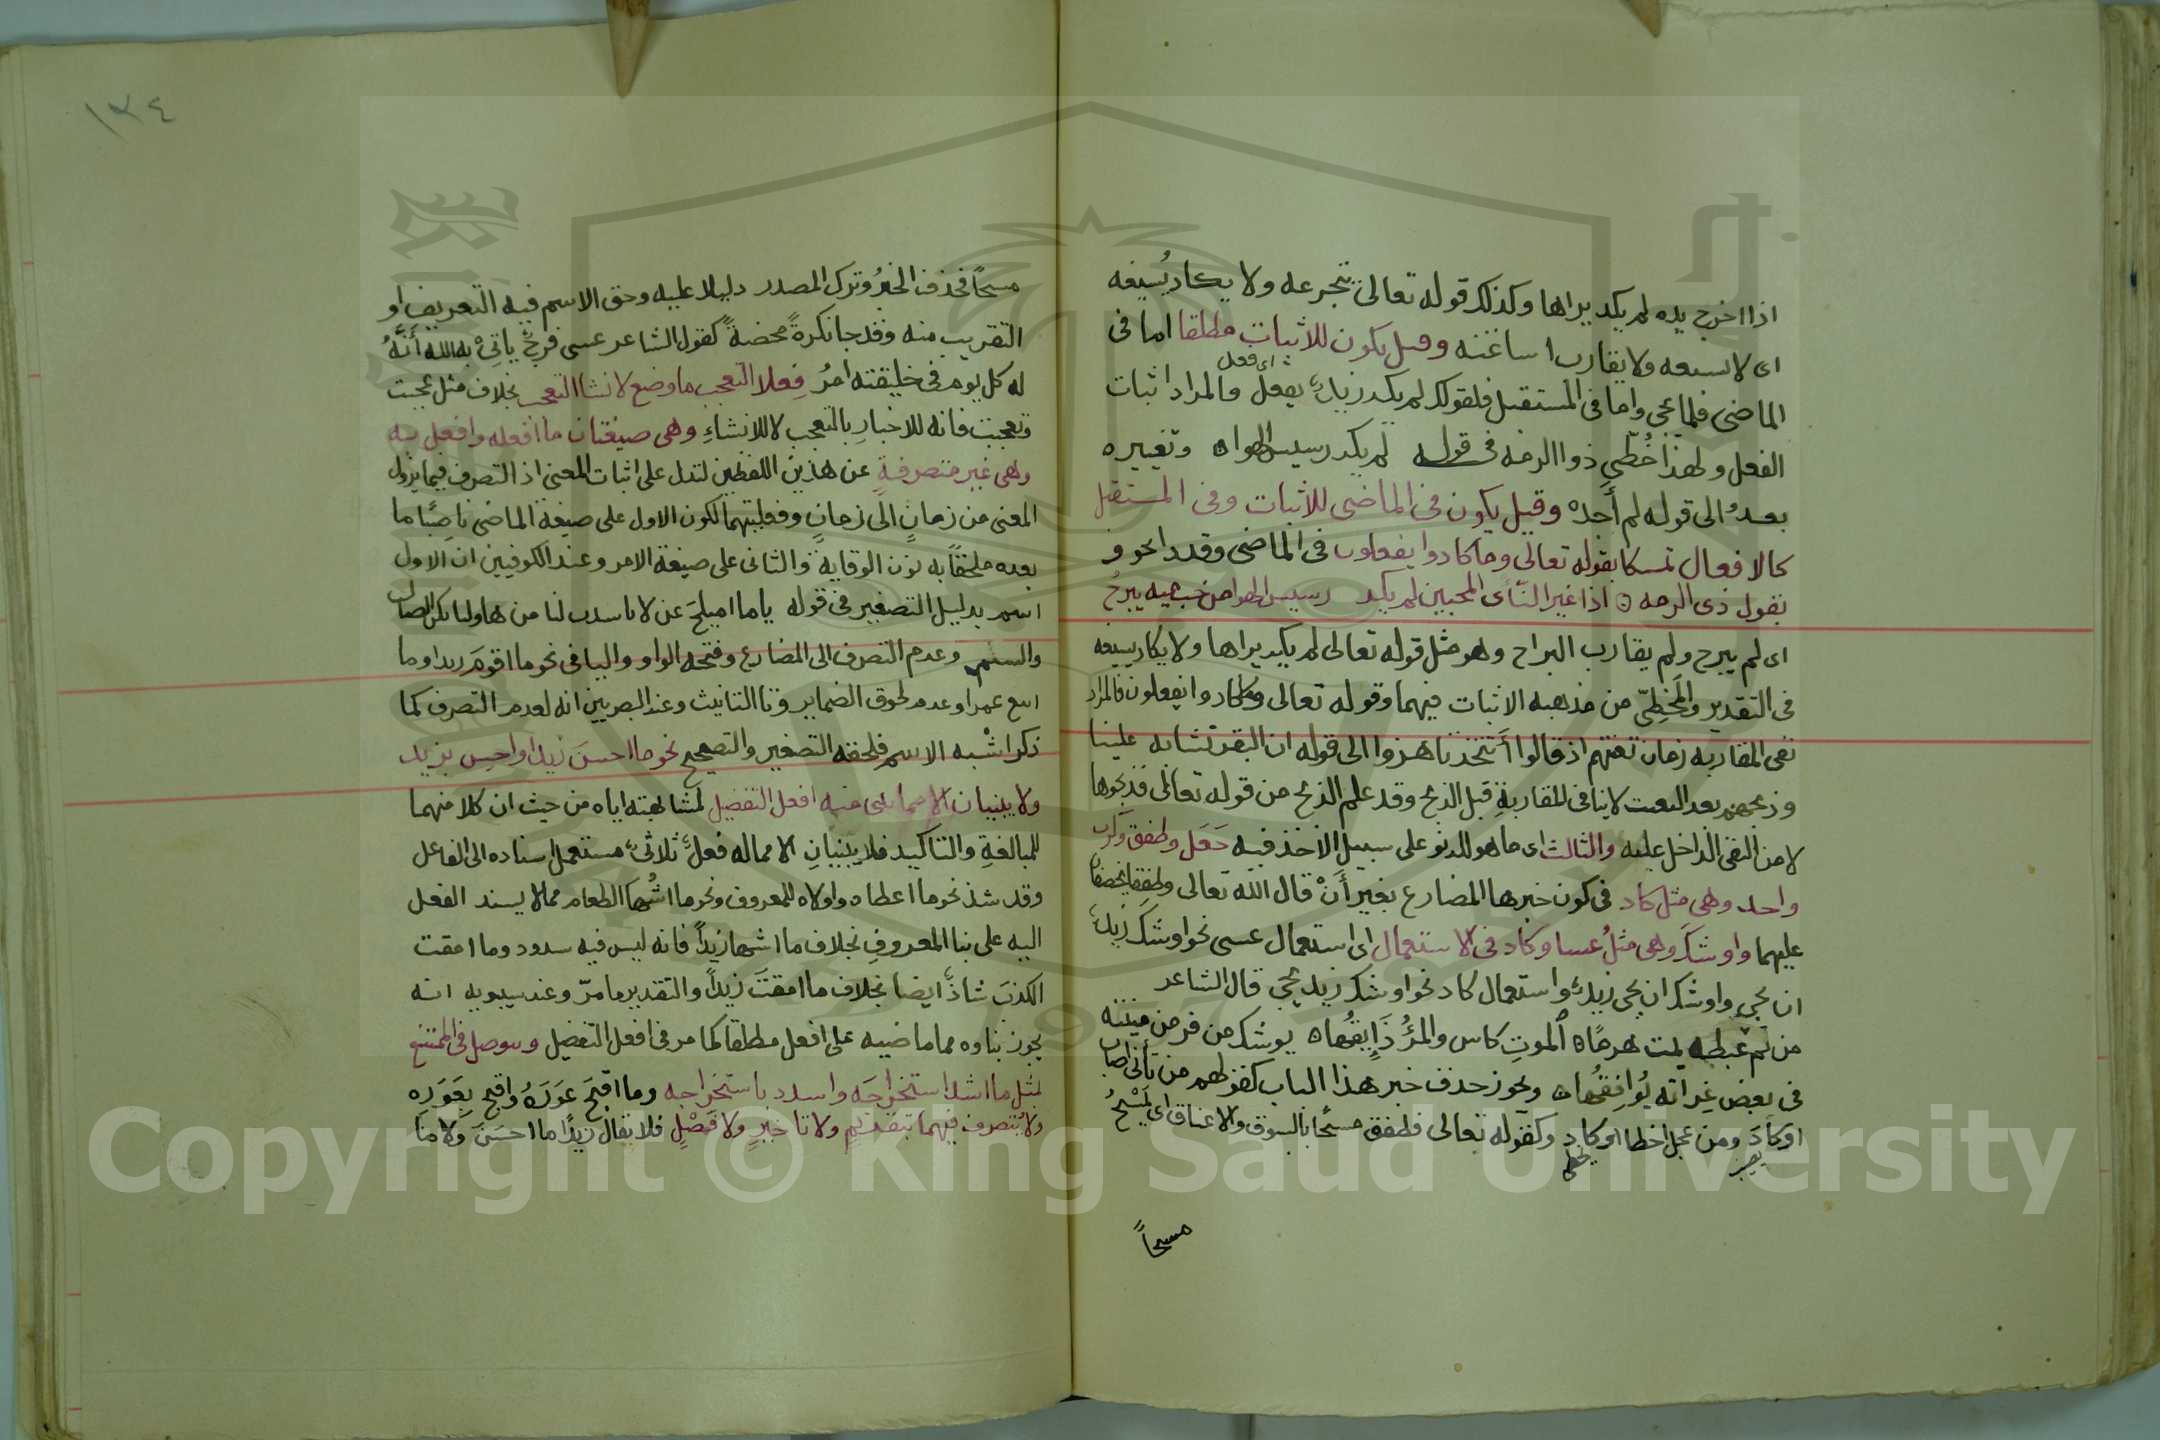 اذا اخرج يده لم يكد يراها وكذلك قوله تعالى يتجرعه ولا يكاد يُسيغه
اى لا يسيغه ولا يقارب اساغته وقيل يكون للاثبات مطلقا اما فى
اى فعل
الماضى فلما يجى واما فى المستقبل فلقولك لم يكد زيد يفعل والمراد اثبات
الفعل ولهذا خُطّى ذوا الرمه فى قوله لم يكد رسيس الهوا وتغييره
بعدهُ الى قوله لم أجده وقيل يكون فى الماضى للاثبات وفى المستقبل
كالافعال تمسكا بقوله تعالى وما كادوا يفعلون فى الماضى وقد
بقول ذى الرمه اذا غير النأى المحبين لم يكد رسيس الهوا من حب ميه يبرحُ
اى لم يبرح ولم يقارب البراح وهو مثل قوله تعالى لم يكد يراها ولا يكاد يسيغه
فى التقدير والمخطّى من مذهبه الاثبات فيهما وقوله تعالى وما كادوا يفعلون فالمراد
نفى المقاربه زمان تعنتهم اذ قالوا أتتخذنا هزوا الى قوله ان البقر تشابه علينا
وذبحهم بعد التعنت لا ينافى المقاربةِ قبل الذبح وقد علم الذبح من قوله تعالى فذبحوها
لا من النفى الداخل عليه والثالث اى ما هو للدنو على سبيل الاخذ فيه جَعَل وطفق وكرب
واحد وهى مثل كاد فى كون خبرها المضارع بغير أَنْ قال الله تعالى وطفقا يخصفان
عليهما واوشكَ وهى مثلُ عسا وكاد فى الاستعمال اى استعمال عسى نحو اوشك زيد
ان يجى واوشك ان يجى زيد واستعمال كاد نحو اوشك زيد يجى قال الشاعر
من لم عبطه يمت هرمًا الموتِ كاس والمرُؤ ذَايقُها يوشك من فر من منيته
فى بعض غِراته يُوافِقُها ويجوز حذف خبر هذا الباب كقولهم من تأنى اصاب
اوكادَ ومن عجل اخطا اوكاد وكقوله تعالى فطفق مسحًا بالسوق والاعناق اى يَمْسَحُ
يصيب
يخطى
مسحاً
١٣٤
مسحاً فحذف الخبرُ وترك المصدر دليلا عليه وحق الاسم فيه التعريف او
التقريب منه وقد جا نكرةً محضةً كقول الشاعر عسى فرجٌ ياتىْ به الله أنَّهُ
له كل يوم فى خليقته امرُ فِعلا التعجب ما وضع لانشا التعجب بخلاف مثل عجبت
وتعجبت فانه للاخبارِ بالتعجب لا للانشاءِ وهى صيغتان ما افعله وافعل به
وهى غير متصرفةٍ عن هذين اللفظين لتدل على اثبات المعنى اذ التصرف فيما يزول
المعنى من زمانٍ الى زمانٍ وفعليتهما لكون الاول على صيغة الماضى ناصِبًا ما
بعده ملحقًا به نون الوقاية والثانى على صيغة الامر وعند الكوفيين ان الاول
اسم بدليل التصغير فى قوله ياما اميلحَ لنا من هاوليا
والسمر وعدم التصرف الى المضارع وفتحه الواو واليا فى نحو ما اقومَ زيدا وما
ابيع عمرا وعدم لحوق الضماير وتا التانيث وعند البصريين انه لعدم التصرف كما
ذكر اشْبه الاسم فلحقه التصغير والتصحيح نحو ما احسنَ زيدا واحسِن بزيد
ولا يبنيان الا مما يبنى منه افعل التفضيل لمشابهته اياه من حيث ان كلا منهما
للمبالغةِ والتاكيد فلا يبنيانِ الا مما له فعلٌ ثلاثىٌ مستعمل اسناده الى الفاعل
وقد شذ نحو ما اعطاه واولاه للمعروف ونحو ما اشْها الطعام مما لا يسند الفعل
اليه على بنا المعروفِ بخلاف ما اشها زيداً فانه ليس فيه شذوذ وما امقت
الكذبَ شاذٌ ايضا بخلاف ما امقتَ زيداً والتقدير ما مرّ وعند سيبويه انه
يجوز بناوه مما ماضيه على افعل مطلقا كما مر فى افعل التفضيل ويتوصل فى الممتنع
بمثل ما اشدَ استخراجَه واشدد باستخراجه وما اقبحَ عوَرَهُ واقبح بِعَوَرِه
ولا يُتصرف فيهما بتقديمٍ ولا تاخيرٍ ولا فَصْلٍ فلا يقال زيدًا ما احسَنَ ولا ما